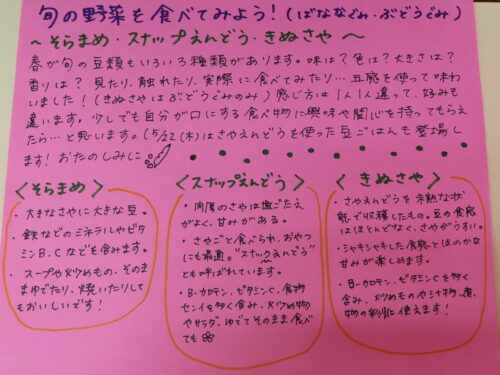 旬の野菜を食べてみよう!(ばななぐみ・ぶどうぐみ)
~そらまめ・スナップえんどう・きぬさや~
春が旬の豆類もいろいろ種類があります。味は?色は?大きさは?
香りは?見たり、触れたり、実際に食べてみたり…五感を使って味わ
いました!(きぬさやはぶどうぐみのみ)感じ方は1人1人違って、好みも
違います。少しでも自分が口にする食べ物に興味や関心を持ってもらえ
たら…と思います。(5/22(木)はさやえんどうを使った豆ごはんも登場し
ます!おたのしみに
<そらまめ>
・大きなさやに大きな豆。
・鉄などのミネラルやビタ
ミンB、Cなどを含みます。
・スープや炒めもの、そのま
まゆでたり、焼いたりして
もおいしいです!
<スナップえんどう>
・肉厚のさやは歯ごたえ
がよく、甘みがある。
・さやごと食べられ、おやつ
にも最適。"スナックえんどう"
とも呼ばれています。
・β-カロテン、ビタミンC、食物
センイを多く含み、炒め物
やサラダ、ゆでてそのまま食べ
ても
<きぬさや>
・さやえんどうを未熟な状
態で収穫したもの。豆の食感
はほとんどなく、さやがうすい。
・シャキシャキした食感とほのかな
甘みが楽しめます。
・β-カロテン、ビタミンCを多く
含み、炒めものや汁物、煮
物の彩りに使えます!